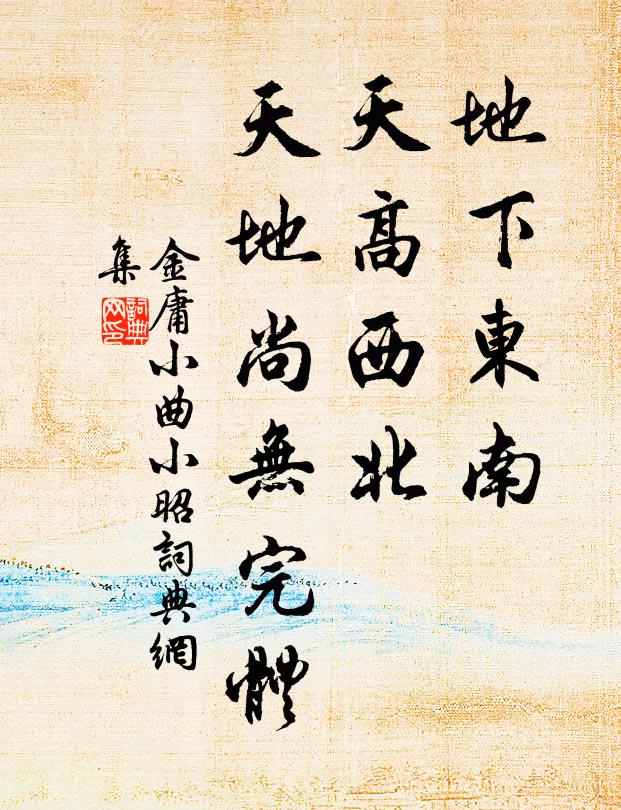 地下東南
天高西北
天地尚無完體
金庸小曲小昭詞典網
集
詞典網印